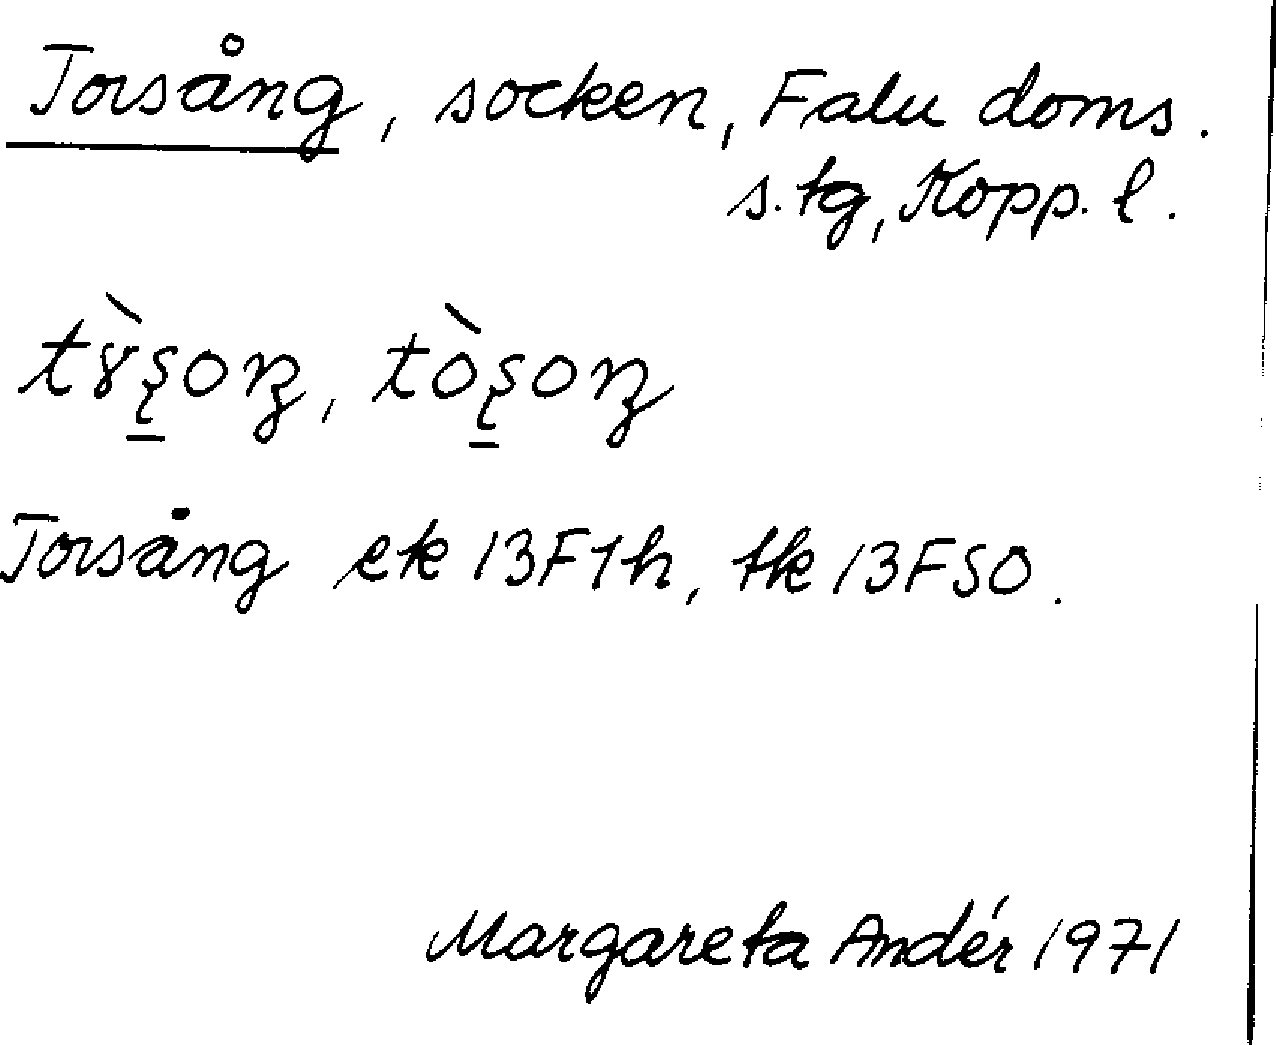 Torsång, socken, Falu doms.
s.tg, Kopp. l.
tɤ̀ʂoŋ, tòʂoŋ
Torsång ek 13F1h, tk 13F50.
Margareta Andér 1971